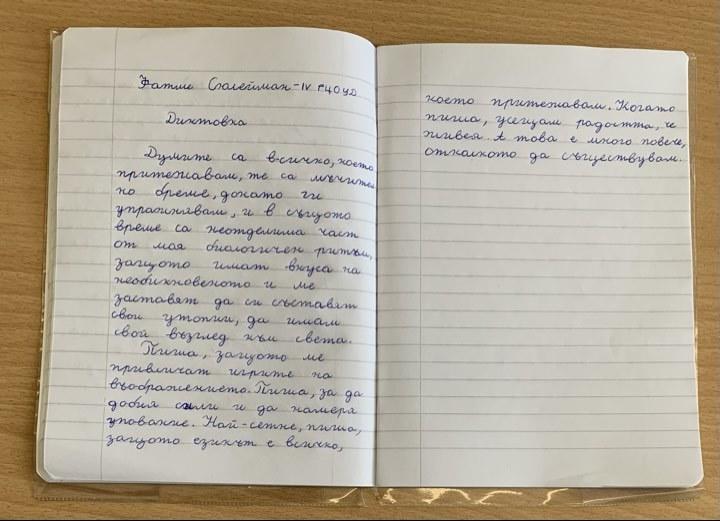 Фатме Сюлейман - IV г ЧОУД
Диктовка
Думите са всичко, което
притежавам, те са мъчител
но бреме, докато ги
упражнявам, и в същото
време са неотделима част
от моя биологичен ритъм,
защото имат вкуса на
необикновеното и ме
заставят да си съставят
свои утопии, да имам
свой възглед към света.
Пиша, защото ме
привличат игрите на
въображението. Пиша, за да
добия сили и да намеря
упование. Най-сетне, пиша,
защото езикът е всичко,
което притежавам. Когато
пиша, усещам радостта, че
живея. А това е много повече,
отколкото да съществувам.